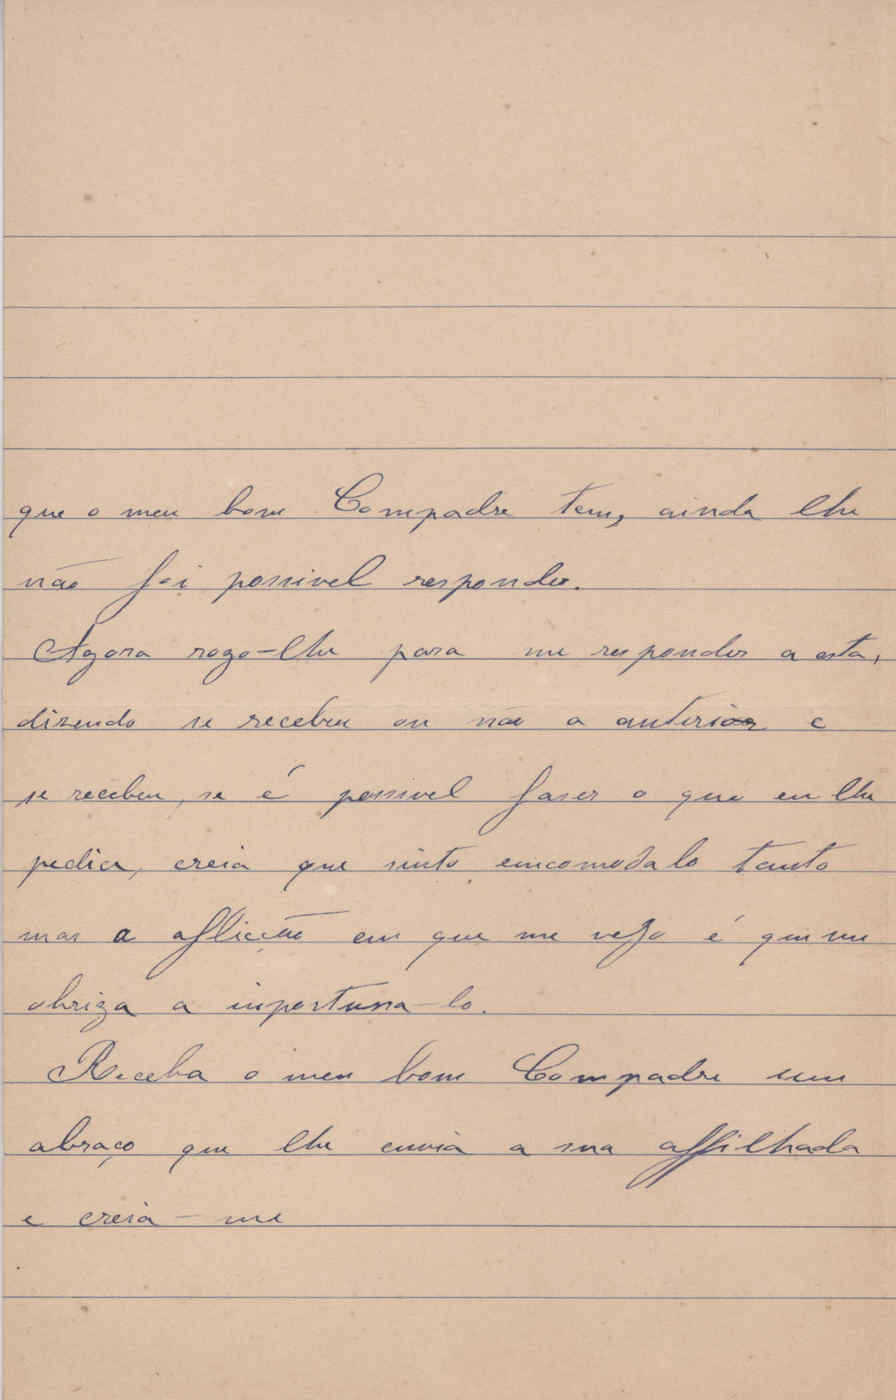 que o meu bom Compadre tem, ainda lhe
não foi possivel responder.
Agora rogo-lhe para me responder a esta,
dizendo se recebeu ou não a anterior e
se recebeu, se é possivel faser o que eu lhe
pedia, creia que sinto emcomodalo tanto
mas a aflicção em que me vejo é que me
obriga a inportuna-lo.
Receba o meu bom Compadre um
abraço que lhe envia a sua affilhada
e creia-me